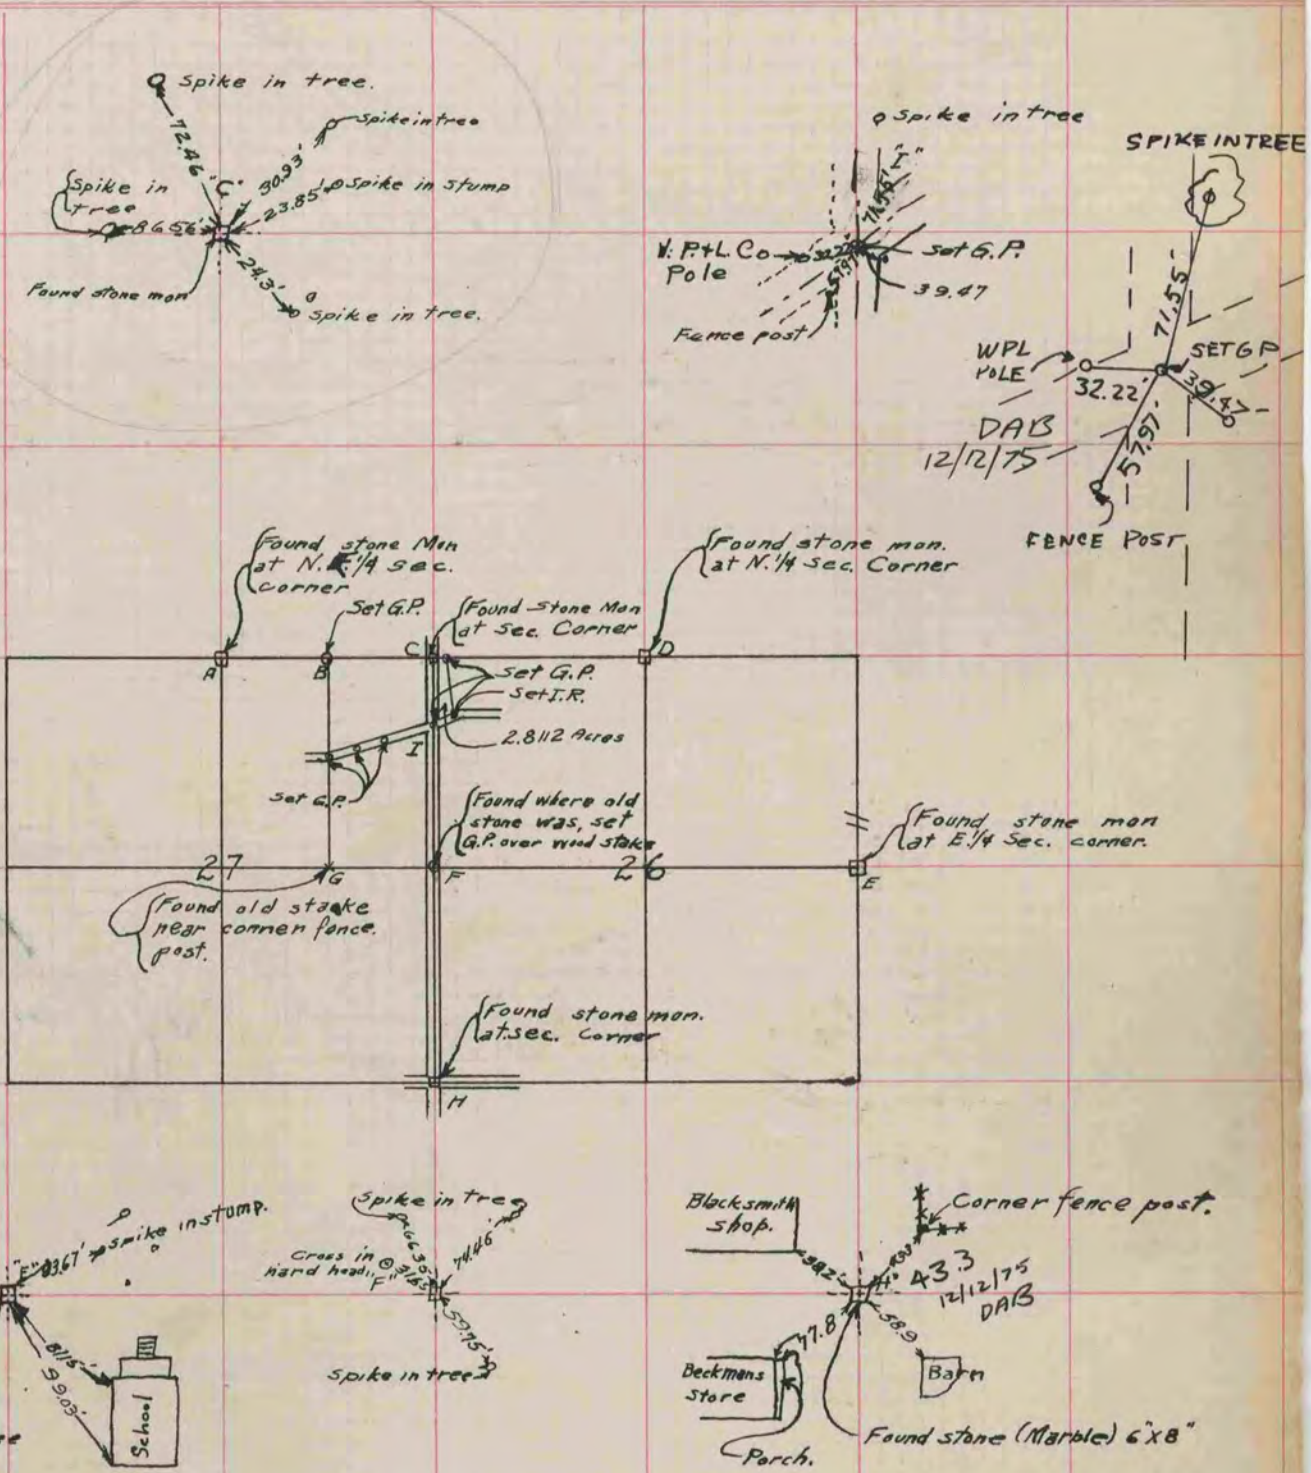 Spike in tree.
72.46'
"C"
30.93'
Spike in tree
23.85'
Spike in stump
Spike in
tree
86.56'
Found stone mon
24.3'
Spike in tree.
Spike in tree
"I"
71.55'
W. P. & L. Co
Pole
Set G.P.
39.47
Fence post
SPIKE IN TREE
71.55'
WPL
POLE
SET G P
32.22'
39.47
57.97'
DAB
12/12/75
FENCE POST
Found stone Mon
at N. 1/4 sec.
corner
Set G.P.
Found Stone Mon
at Sec. Corner
Found stone mon.
at N. 1/4 sec. Corner
A
B
C
D
Set G.P.
Set I.R.
2.8112 Acres
I
Set G.P.
Found where old
stone was, set
G.P. over wood stake
Found stone mon
at E. 1/4 Sec. corner.
27
G
F
26
E
Found old stacke
near cornner fence.
post.
Found stone mon.
at sec. Corner
H
"E"
93.67'
Spike in stump.
81.15'
99.03'
School
Spike in tree
66.36'
74.46'
Cross in
hard head
"F"
59.75'
Spike in tree
Blacksmith
shop.
Corner fence post.
"H"
43.3
12/12/75
DAB
37.8
58.9
Beckmans
Store
Barn
Porch.
Found stone (Marble) 6"x8"